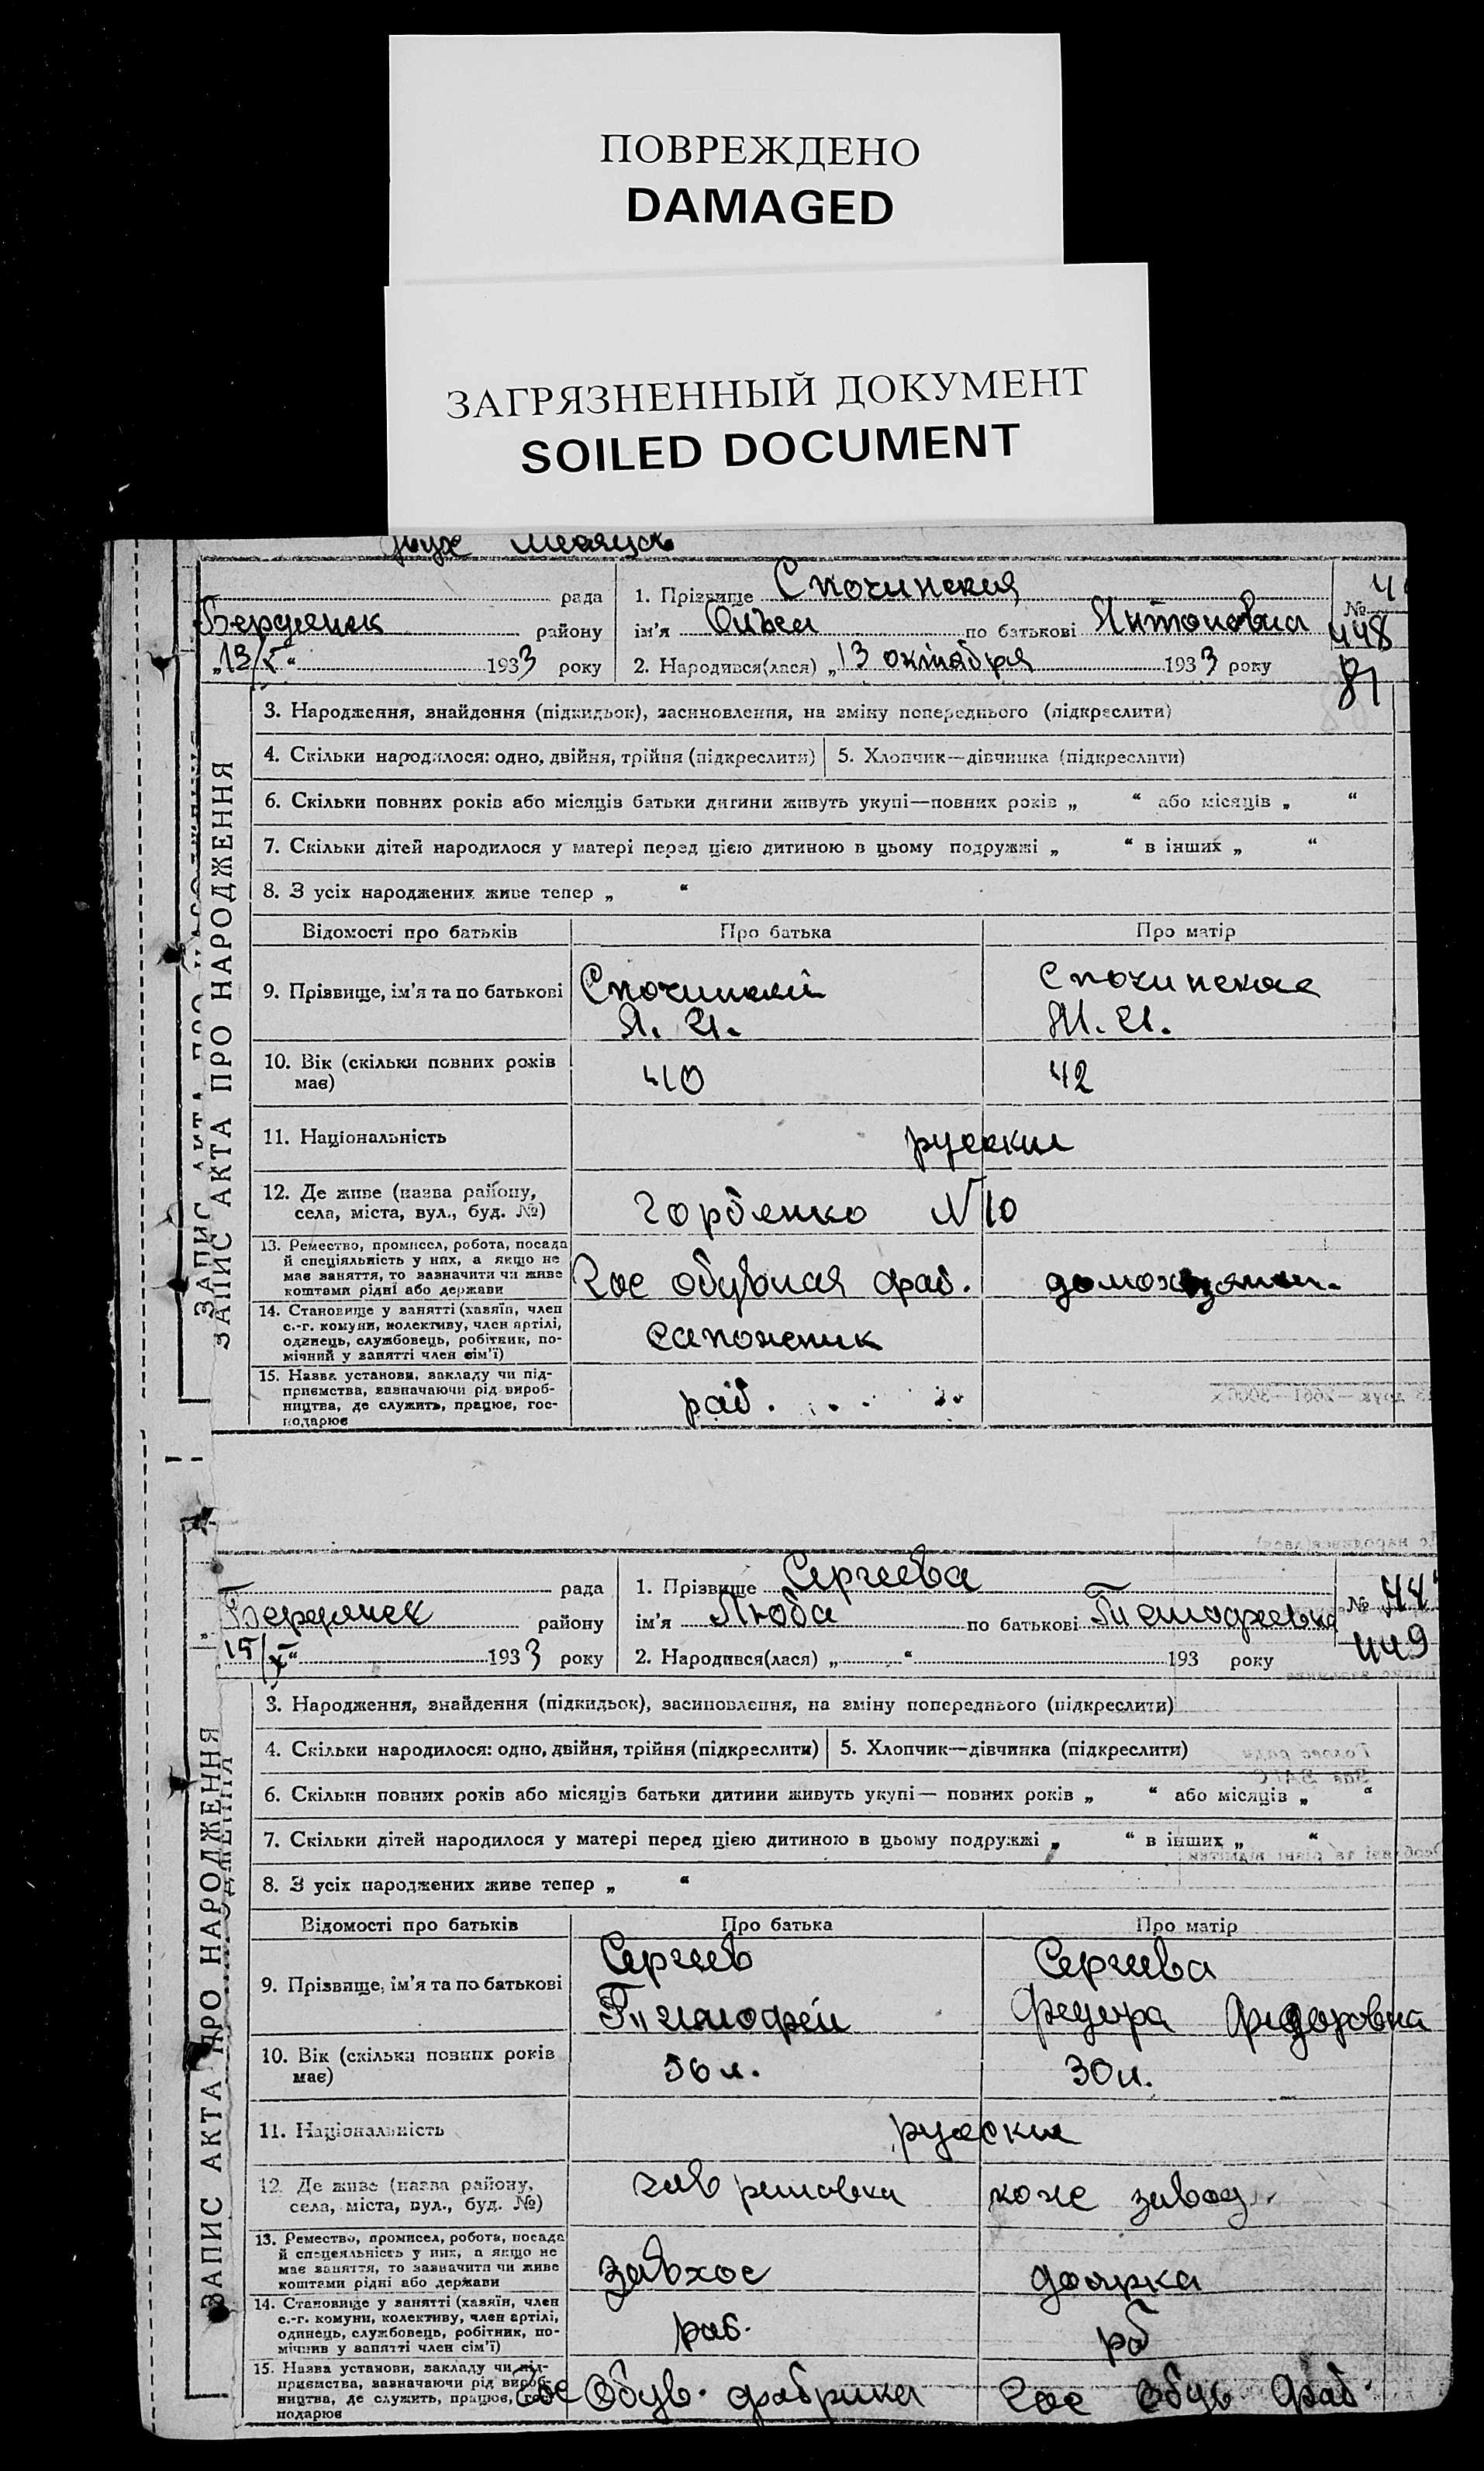 ПОВРЕЖДЕНО
DAMAGED
ЗАГРЯЗНЕННЫЙ ДОКУМЕНТ
SOILED DOCUMENT
двух месяцев
рада
1. Прізвище Спочинская
Бердянск району
ім'я Ольга по батькові Антоновна
№ 448
„13/X“ 1933 року
2. Народився(лася) „13 октября 1933 року
81
ЗАПИС АКТА ПРО НАРОДЖЕННЯ
3. Народження, знайдення (підкидьок), засиновлення, на зміну попереднього (підкреслити)
4. Скільки народилося: одно, двійня, трійня (підкреслити)
5. Хлопчик—дівчинка (підкреслити)
6. Скільки повних років або місяців батьки дитини живуть укупі—повних років „ “ або місяців „ “
7. Скільки дітей народилося у матері перед цією дитиною в цьому подружжі „ “ в інших „ “
8. З усіх народжених живе тепер „ “
Відомості про батьків
Про батька
Про матір
9. Прізвище, ім'я та по батькові
Спочинский
А. И.
Спочинская
М. И.
10. Вік (скільки повних років
має)
40
42
11. Національність
русские
12. Де живе (назва району,
села, міста, вул., буд. №)
Горбенко №10
13. Ремество, промисел, робота, посада
й спеціяльність у них, а якщо не
має заняття, то зазначити чи живе
коштами рідні або держави
Гос обувная фаб.
домохозяин.
14. Становище у занятті (хазяїн, член
с.-г. комуни, колективу, член артілі,
одинець, службовець, робітник, по-
мічний у занятті член сім'ї)
сапожник
15. Назва установи, закладу чи під-
приємства, зазначаючи рід вироб-
ництва, де служить, працює, гос-
подарює
раб.
рада
1. Прізвище Сергеева
Бердянск району
ім'я Люба по батькові Тимофеевна
№ 449
15/X“ 1933 року
2. Народився(лася) „ “ 193 року
ЗАПИС АКТА ПРО НАРОДЖЕННЯ
3. Народження, знайдення (підкидьок), засиновлення, на зміну попереднього (підкреслити)
4. Скільки народилося: одно, двійня, трійня (підкреслити)
5. Хлопчик—дівчинка (підкреслити)
6. Скільки повних років або місяців батьки дитини живуть укупі— повних років „ “ або місяців „ “
7. Скільки дітей народилося у матері перед цією дитиною в цьому подружжі „ “ в інших „ “
8. З усіх народжених живе тепер „ “
Відомості про батьків
Про батька
Про матір
9. Прізвище, ім'я та по батькові
Сергеев
Тимофей
Сергеева
Федора Федоровна
10. Вік (скільки повних років
має)
36 л.
30 л.
11. Національність
русские
12. Де живе (назва району,
села, міста, вул., буд. №)
коже завод
13. Ремество, промисел, робота, посада
й спецеяльність у них, а якщо не
має заняття, то зазначити чи живе
коштами рідні або держави
завхос
доярка
14. Становище у занятті (хазяїн, член
с.-г. комуни, колективу, член артілі,
одинець, службовець, робітник, по-
мічнив у занятті член сім'ї)
раб.
рб
15. Назва установи, закладу чи під-
приємства, зазначаючи рід вироб-
ництва, де служить, працює, гос-
подарює
Гос Обув. фабрика
Гос Обув Фаб.